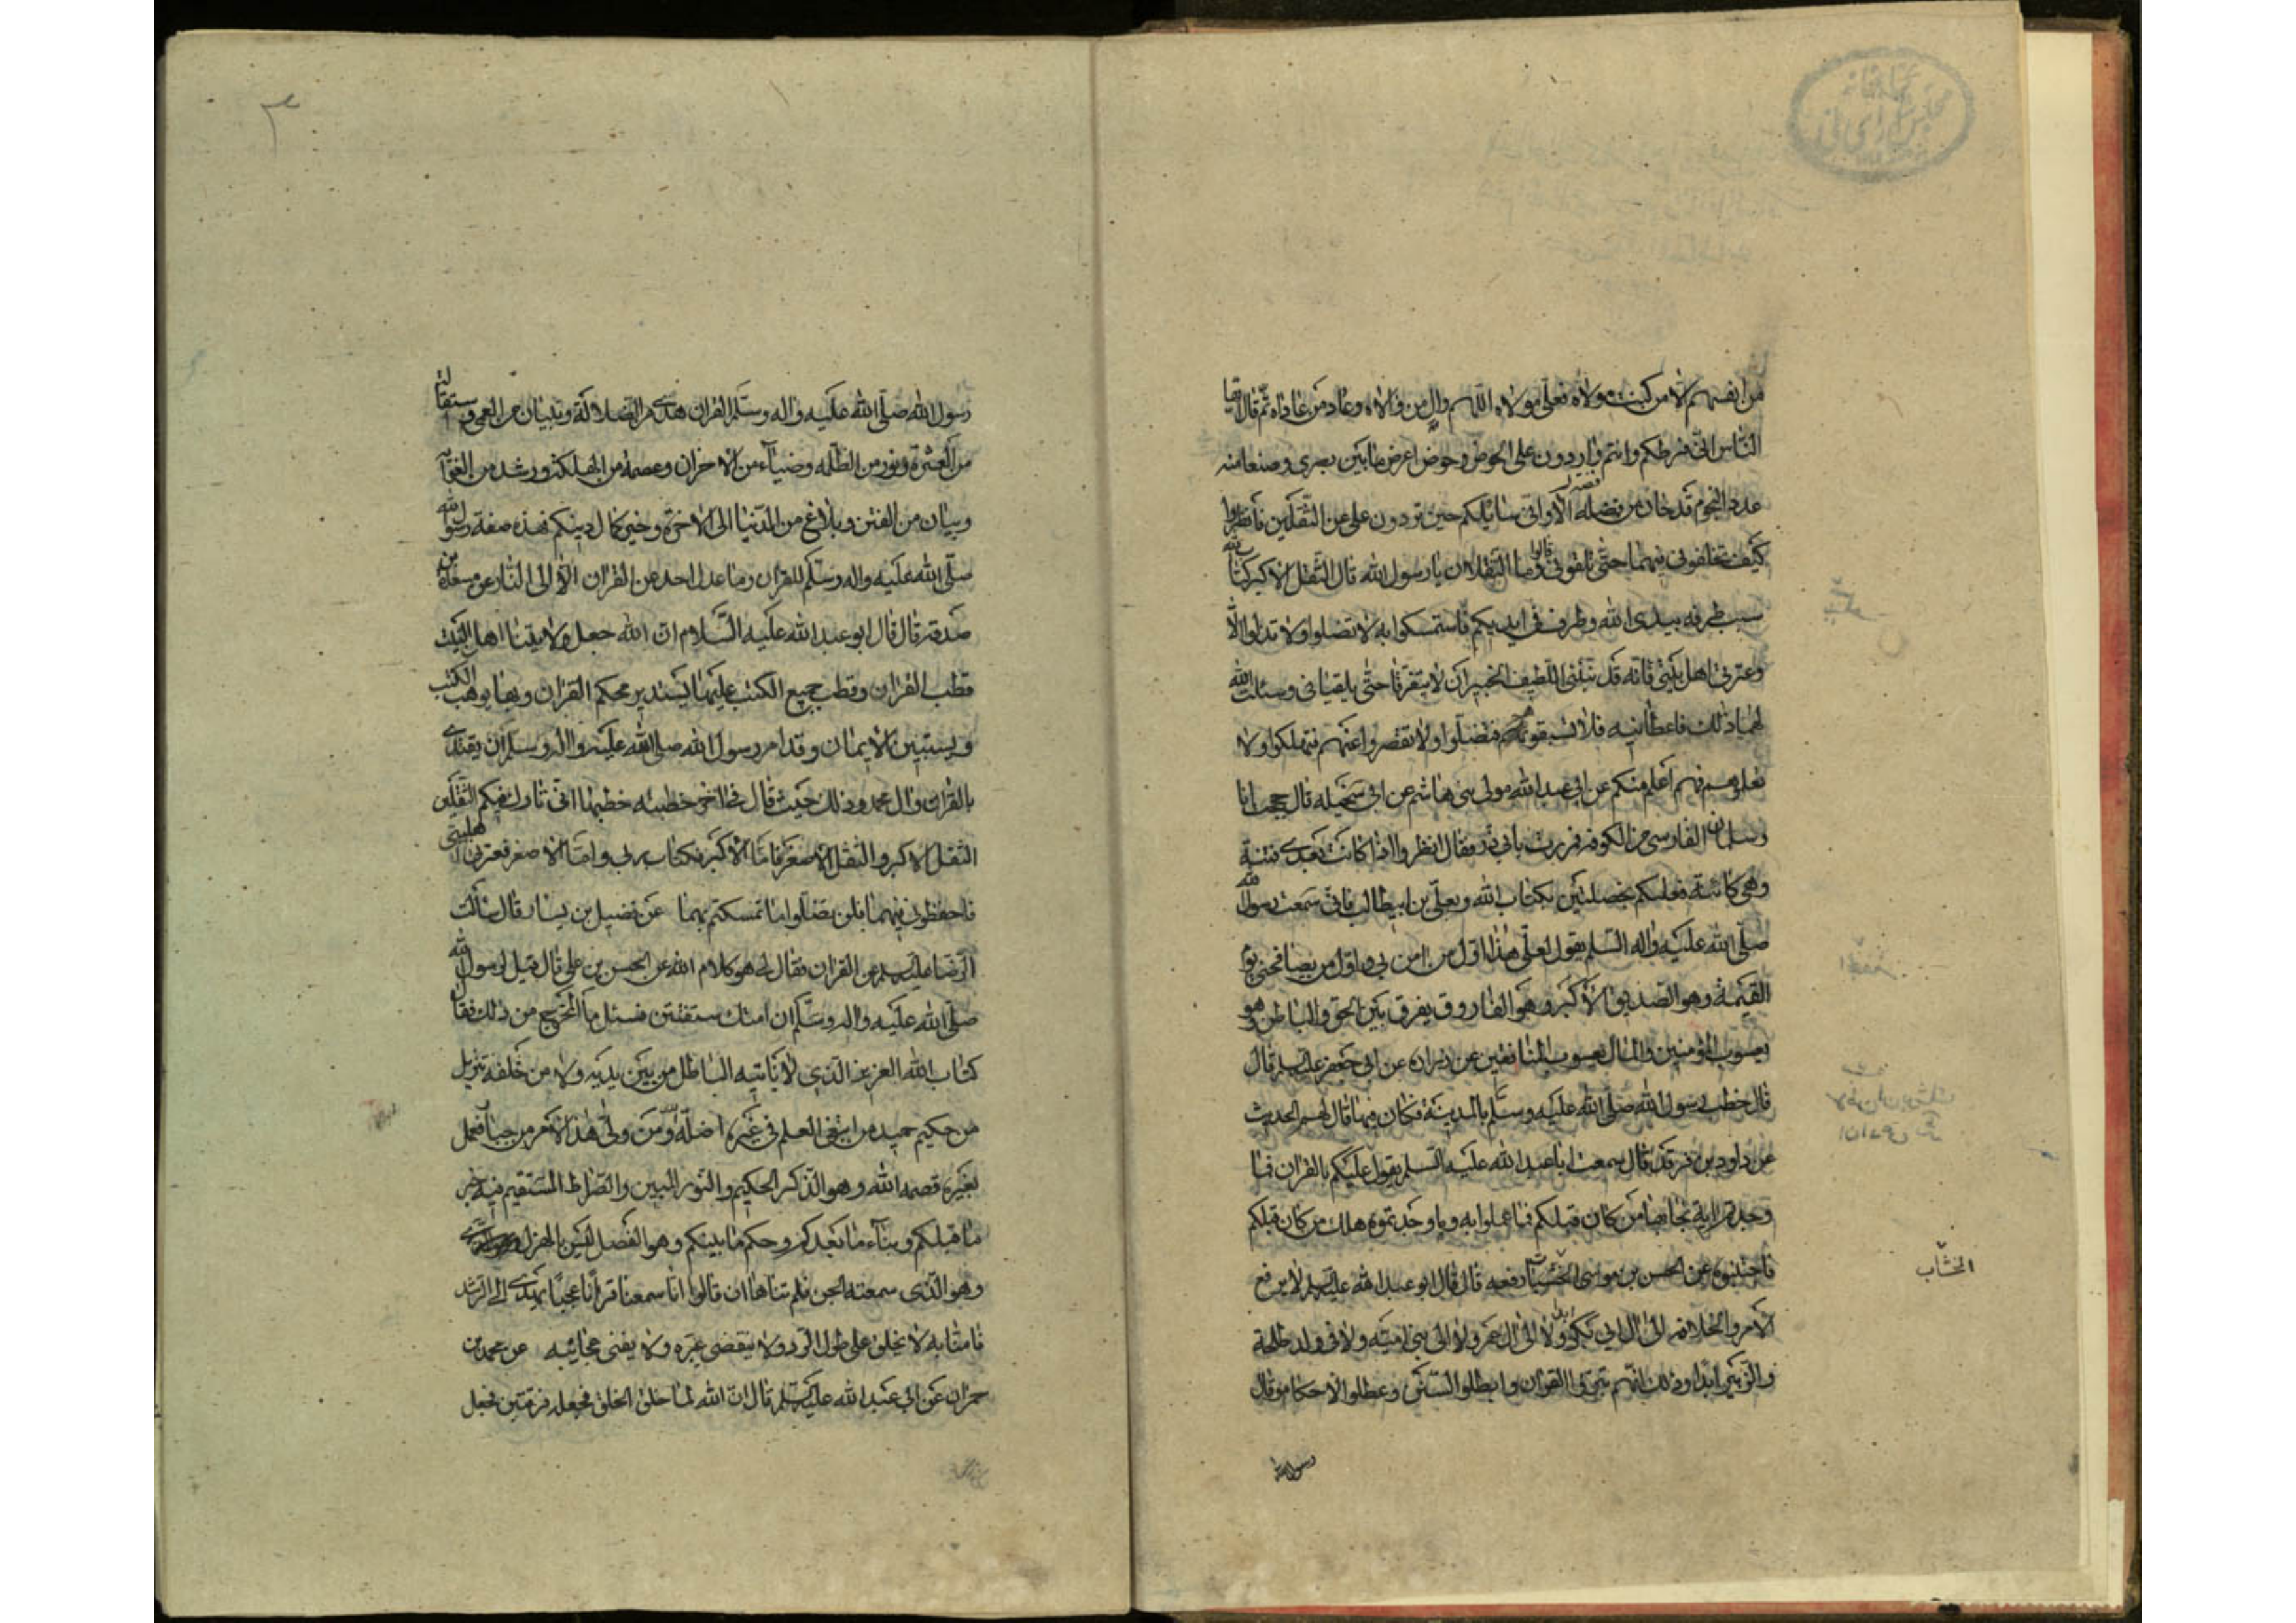 من انفسهم الا من كنت مولاه فعلى مولاه اللهم وال من والاه وعاد من عاداه ثم قال ايها
الناس انى فرطكم وانتم واردون على الحوض وحوض اعرض ما بين بصرى وصنعا منه
عدد النجوم قدحان من فضله الا وانى سائلكم حين تردون على عن الثقلين فانظروا
كيف تخلفونى فيهما حتى تلقونى قالوا وما الثقلان يا رسول الله قال الثقل الاكبر كتاب الله
سبب طرفه بيدى الله وطرف فى ايديكم فاستمسكوا به لا تضلوا ولا تدلوا الا
وعترتى اهل بيتى فانه قد نبئنى اللطيف الخبير ان لا يتفرقا حتى يلقيانى وسئلت الله
لهما ذلك فاعطانيه فلا تسبقوهم فتضلوا ولا تقصروا عنهم فتهلكوا ولا
تعلموهم فهم اعلم منكم عن ابى عبد الله مولى بنى هاشم عن ابى سخيله قال حججت انا
وسلمان الفارسى من الكوفه فمررت بابى ذر فقال انظروا اذا كانت بعدى فتنة
وهى كائنة فعليكم بخصلتين بكتاب الله وبعلى بن ابيطالب فانى سمعت رسول الله
صلى الله عليه واله السلم يقول لعلى هذا اول من امن بى واول من يصافحنى يوم
القيمة وهو الصديق الاكبر وهو الفاروق يفرق بين الحق والباطل وهو
يعسوب المؤمنين والمال يعسوب المنافقين عن زراره عن ابى جعفر عليه السلم قال
قال خطب رسول الله صلى الله عليه وسلم بالمدينة فكان فيما قال لهم الحديث
عن داود بن فرقد قال سمعت ابا عبد الله عليه السلم يقول عليكم بالقران فما
وجدتم اية نجا بها من كان قبلكم فاعملوا به وما وجدتموه هلك من كان قبلكم
فاجتنبوه عن الحسن بن موسى الخشاب رفعه قال قال ابو عبد الله عليه السلم لا يرفع
الامر والخلافة الى ال ابى بكر ابدا ولا الى ال عمر ولا الى بنى امية ولا فى ولد طلحة
والزبير ابدا وذلك انهم بتروا القران وابطلوا السنن وعطلوا الاحكام وقال
رسول الله
الخشاب
رسول الله صلى الله عليه واله وسلم القران هدى من الضلالة وتبيان من العمى واستقالة
من العثرة ونور من الظلمه وضياء من الاحزان وعصمة من الهلكة ورشد من الغواية
وبيان من الفتن وبلاغ من الدنيا الى الاخرة وفيه كمال دينكم فهذه صفة رسول الله
صلى الله عليه واله وسلم للقران وما عدل احد عن القران الا الى النار عن مسعدة بن
صدقة قال قال ابو عبد الله عليه السلام ان الله جعل ولايتنا اهل البيت
قطب القران وقطب جميع الكتب عليها يستدير محكم القران وبها يوهب الكتب
ويستبين الايمان وقد امر رسول الله صلى الله عليه واله وسلم ان يقتدى
بالقران وال محمد وذلك حيث قال فى اخر خطبته خطبها انى تارك فيكم الثقلين
الثقل الاكبر والثقل الاصغر فاما الاكبر فكتاب ربى واما الاصغر فعترتى اهل بيتى
فاحفظونى فيهما فلن تضلوا ما تمسكتم بهما عن فضيل بن يسار قال سألت
الرضا عليه السلم عن القران فقال لى هو كلام الله عن الحسن بن على قال قيل لرسول الله
صلى الله عليه واله وسلم ان امتك ستفتتن فسئل ما المخرج من ذلك فقال
كتاب الله العزيز الذى لا يأتيه الباطل من بين يديه ولا من خلفه تنزيل
من حكيم حميد من ابتغى العلم فى غيره اضله الله ومن ولى هذا الامر من جبار فعمل
بغيره قصمه الله وهو الذكر الحكيم والنور المبين والصراط المستقيم فيه خبر
ما قبلكم ونبأء ما بعدكم وحكم ما بينكم وهو الفصل ليس بالهزل
وهو الذى سمعته الجن فلم تناها ان قالوا انا سمعنا قرانا عجبا يهدى الى الرشد
فامنا به لا يخلق على طول الرد ولا ينقضى عبره ولا يفنى عجائبه عن محمد بن
حمران عن ابى عبد الله عليه السلم قال ان الله لما خلق الخلق فجعله فرقتين فجعل